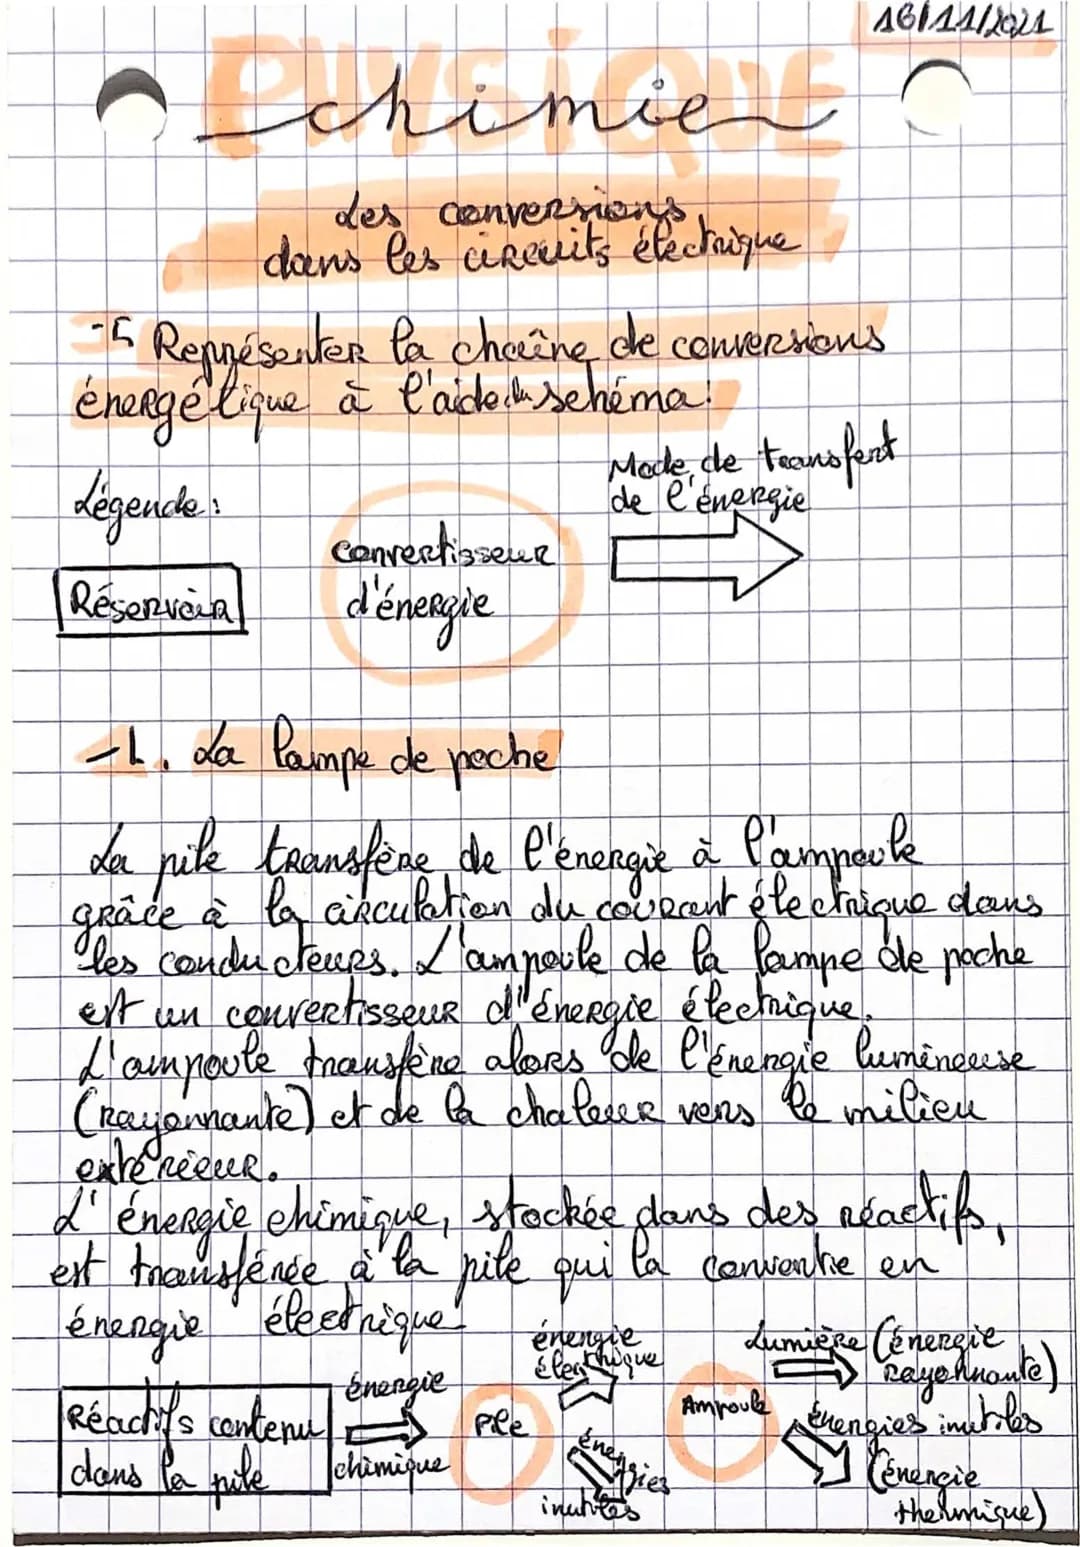 16/11/2021
PHYSIQUE
chimie
Les conversions
dans les circuits électrique
Représenter la chaîne de conversions
énergétique à l'aide du schéma:
Légende:
Mode de transfert
de l'énergie
Convertisseur
d'énergie
Réservoir
-1. La lampe de poche
La pile transfère de l'énergie à l'ampoule
grâce à la circulation du courant électrique dans
les conducteurs. L'ampoule de la lampe de poche
est un convertisseur d'énergie électrique.
L'ampoule transfère alors de l'énergie lumineuse
(rayonnante) et de la chaleur vers le milieu
extérieur.
L'énergie chimique, stockée dans des réactifs,
est transférée à la pile qui la convertie en
énergie électrique
Réactifs contenu
dans la pile
énergie
chimique
Pile
énergie
électrique
énergies
inutiles
Ampoule
Lumière (énergie
rayonnante)
énergies inutiles
(énergie
thermique)